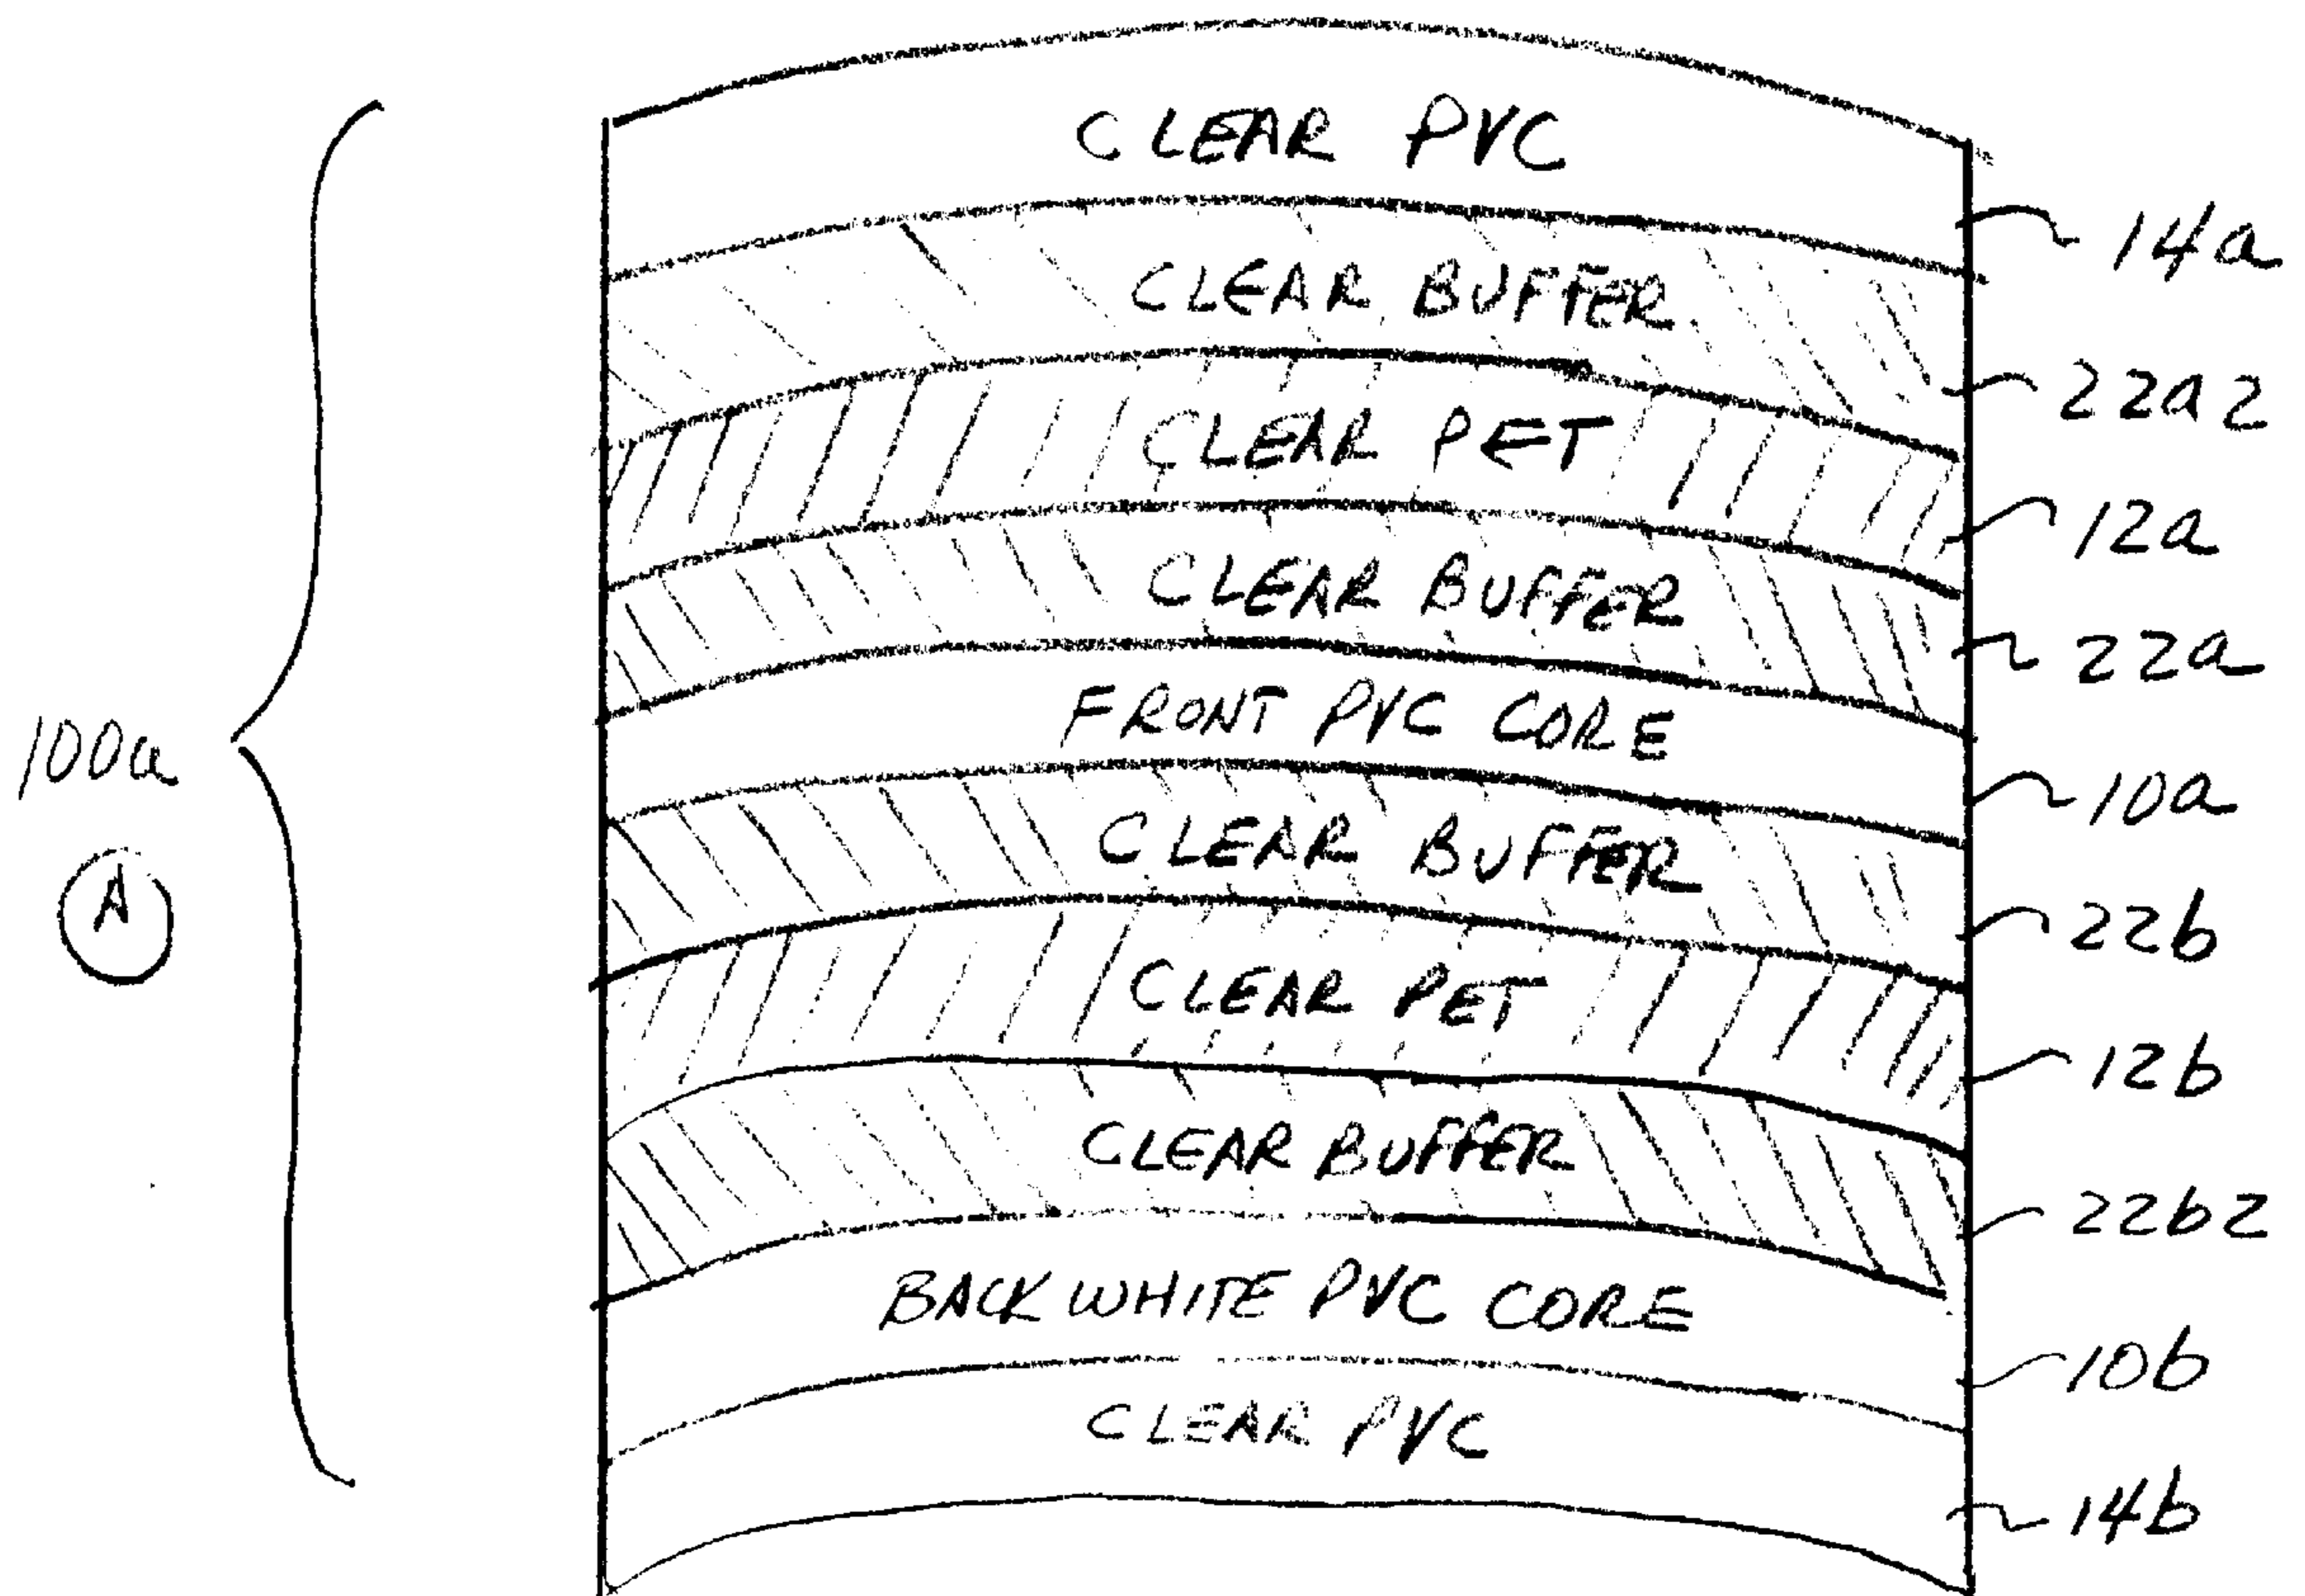 CLEAR PVC
14a
CLEAR BUFFER
22a2
CLEAR PET
12a
CLEAR BUFFER
22a
FRONT PVC CORE
100a
10a
CLEAR BUFFER
A
22b
CLEAR PET
12b
CLEAR BUFFER
22b2
BACK WHITE PVC CORE
10b
CLEAR PVC
14b